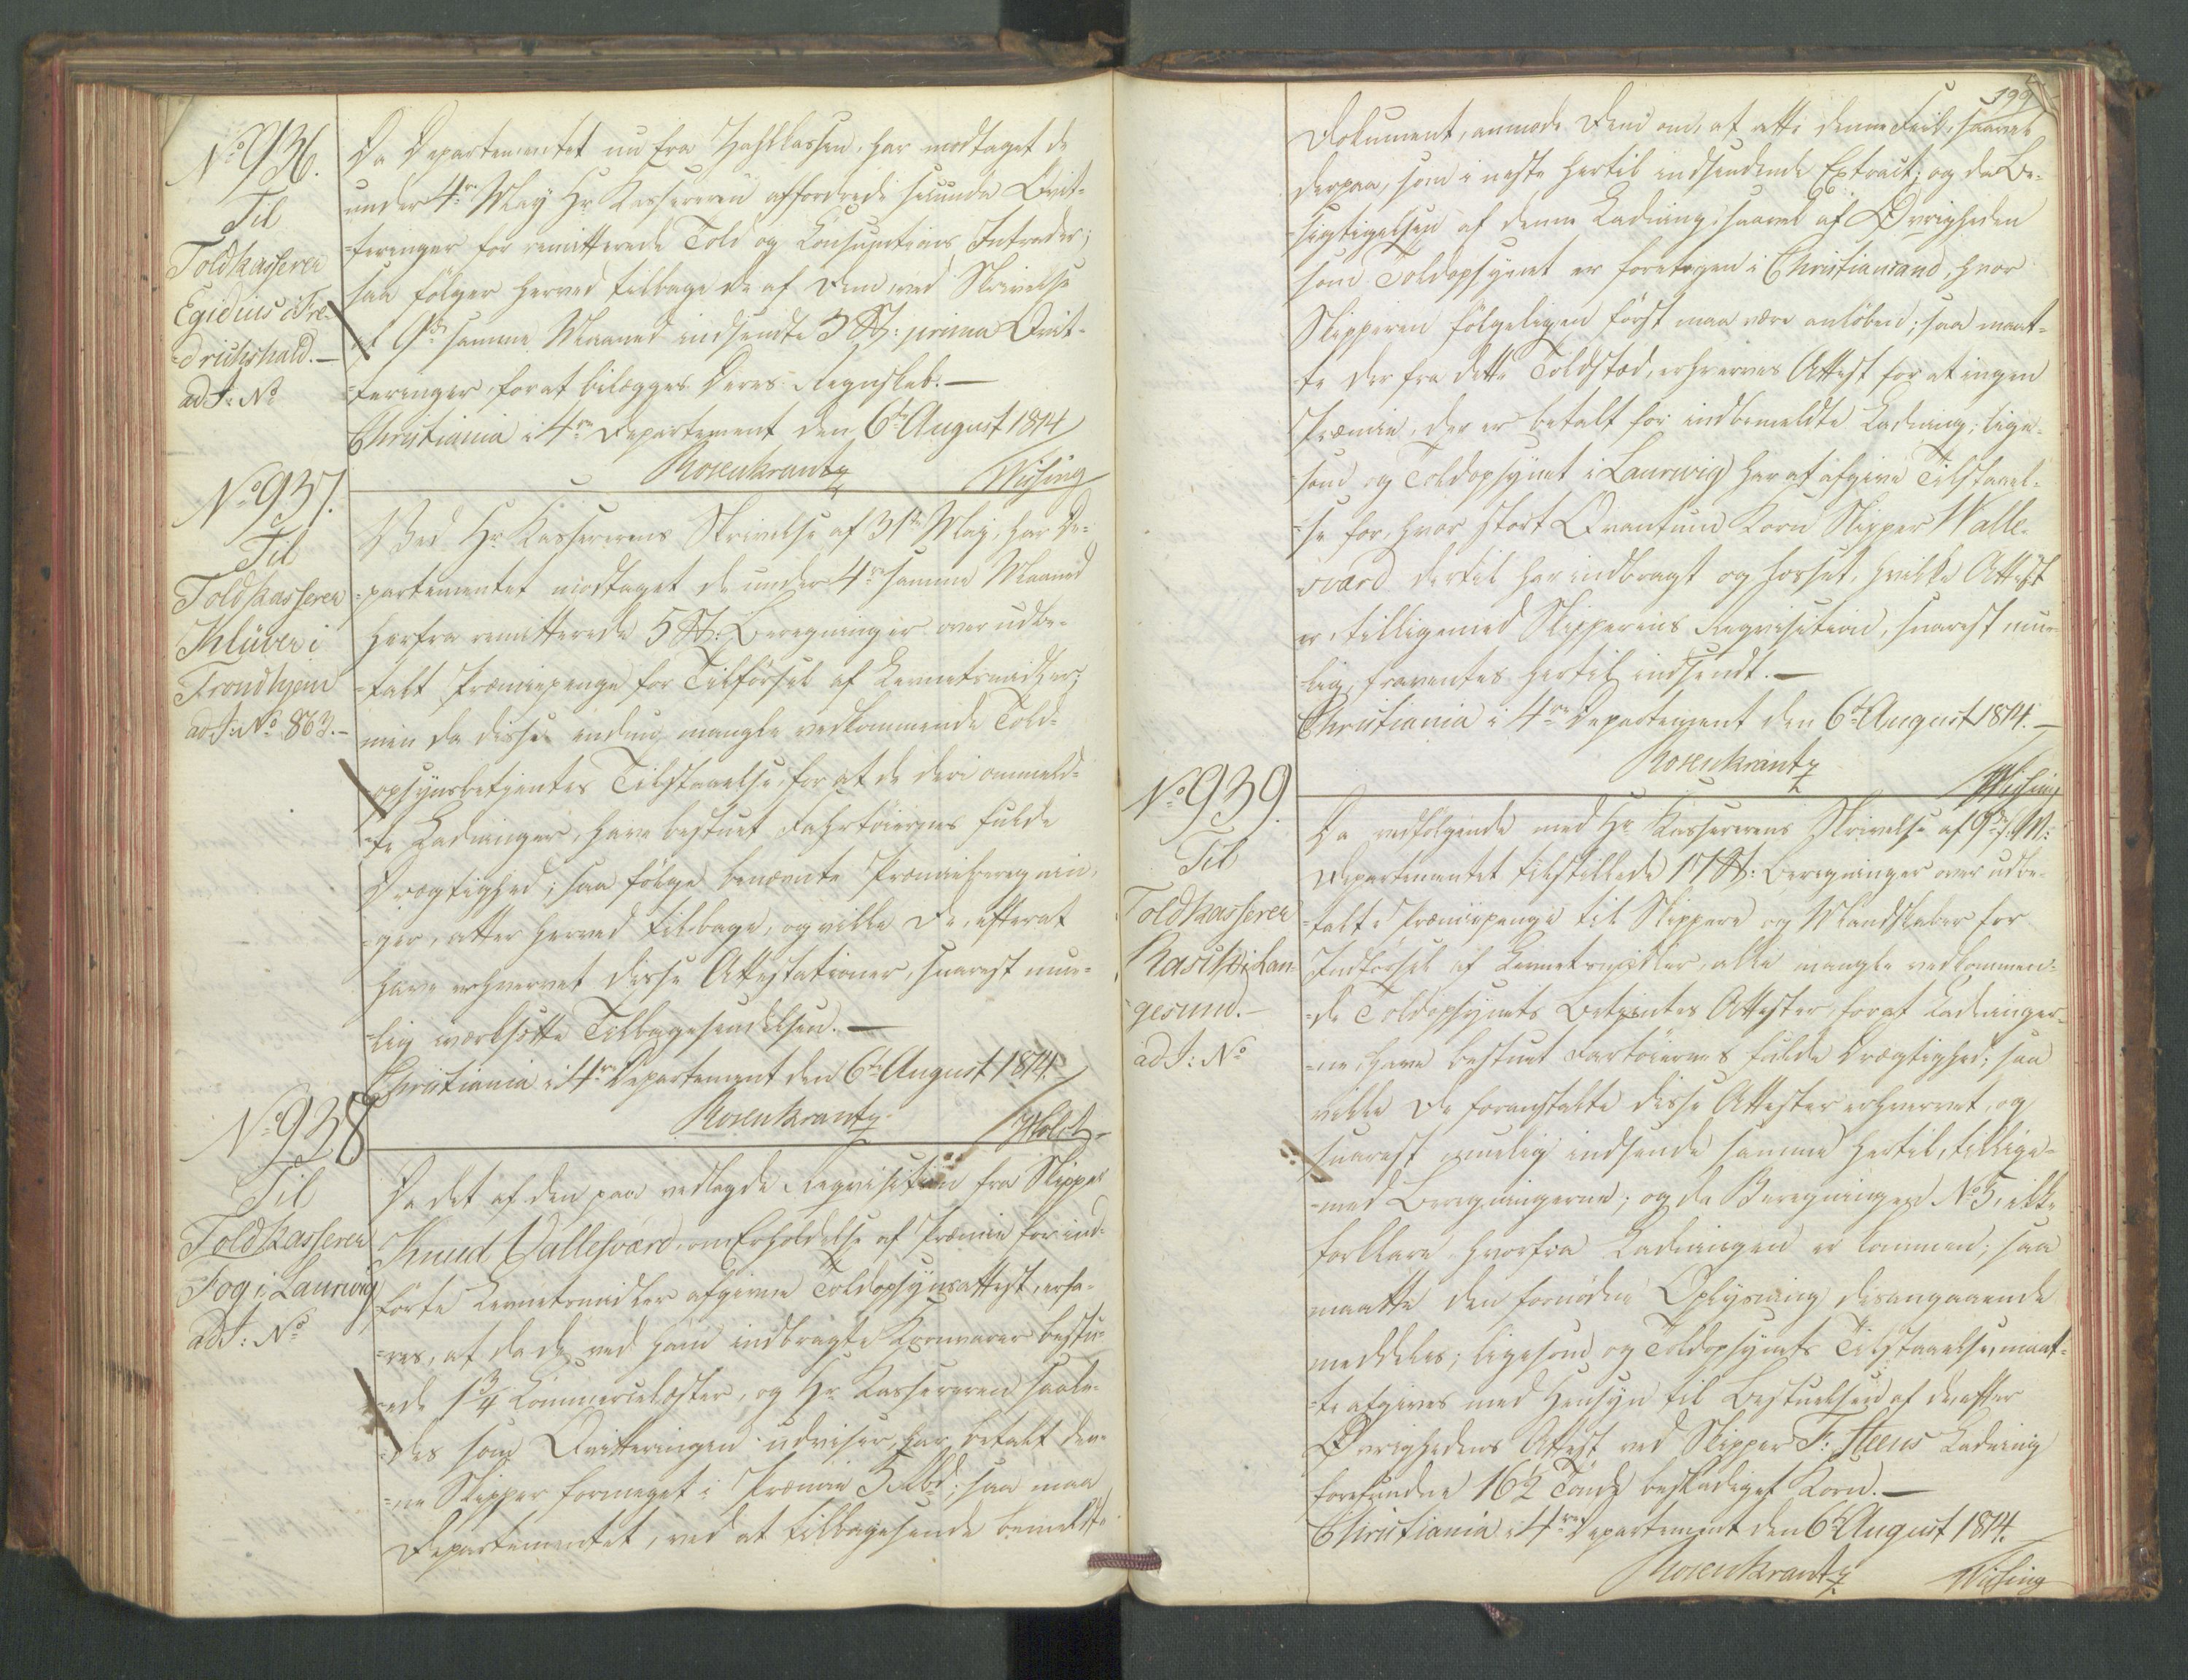 No 936.
Til
Toldkasserer
Egidius i Fre-
drichshald.—
ad J: No
Da Departementet nu fra Zahlkassen, har modtaget de
under 4de May Hr Kassereren affordrede secunda Qvit-
=teringer for remitterede Told og Consumtions Intrader;
saa følger herved tilbage de af Dem, ved Skrivelse
af 9de samme Maaned indsendte 3 St: prima Qvit-
=teringer, for at bilægges Deres Regnskab.—
Christiania i 4de Departement den 6te August 1814
Rosenkrantz
Wissing
No 937.
Til
Toldkasserer
Klüver i
Trondhjem
ad J: No 863.-
Ved Hr Kassererens Skrivelse af 31te May, har De-
=partementet modtaget de under 4de samme Maaned
herfra remitterede 5 St: Beregninger over udbe-
=talt Præmiepenge for Tilførsel af Levnetsmidler;
men da disse endnu mangle vedkommende Told-
=opsynsbetjentes Tilstaaelse for at de deri ommeld-
=te Ladninger, have bestuet Fahrtøiernes fulde
Drægtighed; saa følge benævnte Præmieberegnin-
=ger, atter herved tilbage, og ville De, efterat
have erhvervet disse Attestationer, snarest mue-
=lig iværksætte Tilbagesendelsen.—
Christiania i 4de Departement den 6te August 1814.
Rosenkrantz
Holst
No 938
Til
Toldkasserer
Fog i Laurvig
ad J: No
Da det af den paa vedlagde Reqvisition fra Skipper
Knud Vallesværd, om Erholdelse af Præmie for ind-
førte Levnetsmidler afgivne Toldopsynsattest, erfa-
=res, at da de ved ham indbragte Kornvarer bestu-
=ede 13/4 Commercelæster, og Hr Kassereren saale-
=des som Qvitteringen udviser, har betalt den-
=ne Skipper formeget i Præmie 3 Rbd; saa maa
Departementet, ved at tilbagesende bemeldte
199
Dokument, anmode Dem om, at rette denne Feil, saavel
derpaa, som i næste hertil indsendende Extract; og da Be-
=sigtigelsen af denne Ladning, saavel af Øvrigheden
som Toldopsynet er foretagen i Christiansand, hvor
Skipperen følgeligen først maa være anløben; saa maat-
=te der fra dette Toldsted, erhverves Attest for at ingen
Præmie, der er betalt for indbemeldte Ladning; lige-
=som og Toldopsynet i Laurvig har at afgive Tilstaael-
=se for, hvor stort Qvantum Korn Skipper Walle-
sværd dertil har indbragt og losset, hvilke Attest
er, tilligemed Skipperens Reqvisition, snarest mue-
=lig, forventes hertil indsendt.—
Christiania i 4de Departement den 6te August 1814.—
Rosenkrantz
Wissing
No 939.
Til
Toldkasserer
i Lan-
gesund.—
ad J: No
Da vedfølgende med Hr Kassererens Skrivelse af 9de f: M:
Departementet tilstillede 17 St: Beregninger over udbe-
=talte Præmiepenge til Skippere og Mandskaber for
Indførsel af Levnetsmidler, alle mangle vedkommen-
=de Toldopsynets Betjentes Attester, for at Ladninger-
=ne, have bestuet Fartøiernes fulde Drægtighed; saa
ville De foranstalte disse Attester erhvervet, og
snarest muelig indsende samme hertil, tillige-
=med Beregningerne; og da Beregningen No 5, ikke
forklare hvorfra Ladningen er kommen; saa
maatte den fornødne Oplysning desangaaende
meddeles; ligesom og Toldopsynets Tilstaaelse, maat-
=te afgives med Hensyn til Bestuelsen af de, efter
Øvrighedens Attest, ved Skipper F: Steens Ladning
forefundne 16½ Tønde beskadiget Korn.—
Christiania i 4de Departement den 6te August 1814.
Rosenkrantz
Wissing